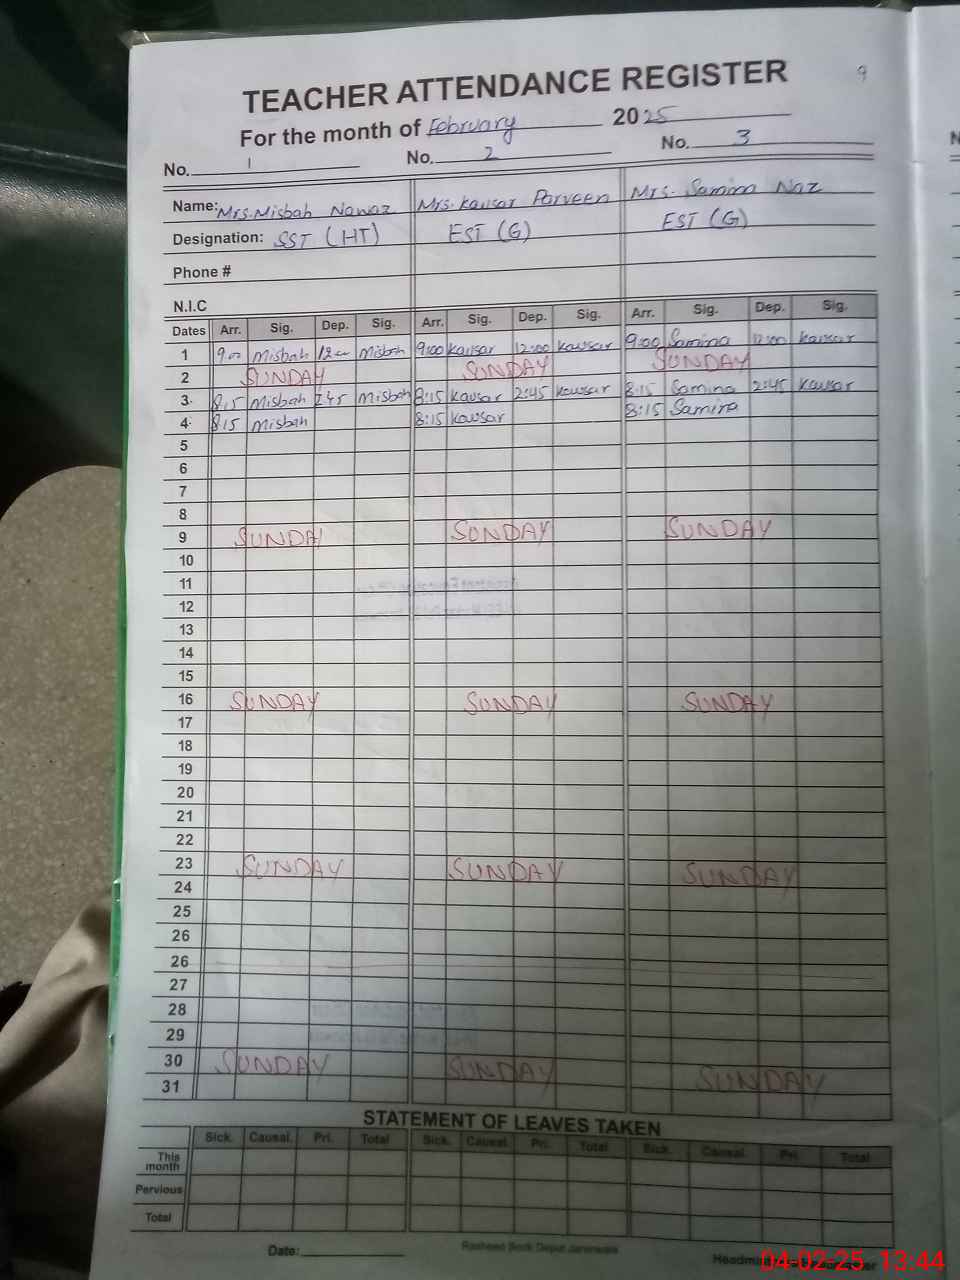 9
TEACHER ATTENDANCE REGISTER
For the month of February 2025
No. 1 No. 2 No. 3
Name: Mrs. Misbah Nawaz Mrs. Kausar Parveen Mrs. Samina Naz
Designation: SST (HT) EST (G) EST (G)
Phone #
N.I.C
Dates Arr. Sig. Dep. Sig. Arr. Sig. Dep. Sig. Arr. Sig. Dep. Sig.
1 9:00 Misbah 12:00 Misbah 9:00 Kausar 12:00 Kausar 9:00 Samina 12:00 Kausar
2 SUNDAY SUNDAY SUNDAY
3 8:15 Misbah 2:45 Misbah 8:15 Kausar 2:45 Kausar 8:15 Samina 2:45 Kausar
4 8:15 Misbah 8:15 Kausar 8:15 Samina
5
6
7
8
9 SUNDAY SUNDAY SUNDAY
10
11
12
13
14
15
16 SUNDAY SUNDAY SUNDAY
17
18
19
20
21
22
23 SUNDAY SUNDAY SUNDAY
24
25
26
26
27
28
29
30 SUNDAY SUNDAY SUNDAY
31
STATEMENT OF LEAVES TAKEN
Sick. Causal. Pri. Total Sick. Causal. Pri. Total Sick. Causal. Pri. Total
This month
Pervious
Total
Date: Rasheed Book Depot Jaranwala
04-02-25 13:44